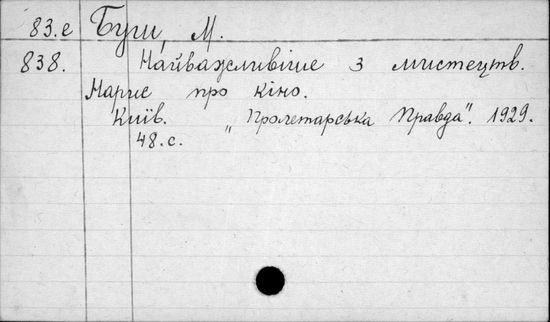 83.е Буш, М.
838. Найважливіше з мистецтв.
Нарис про кіно.
Київ. „Пролетарська Правда". 1929.
48.с.